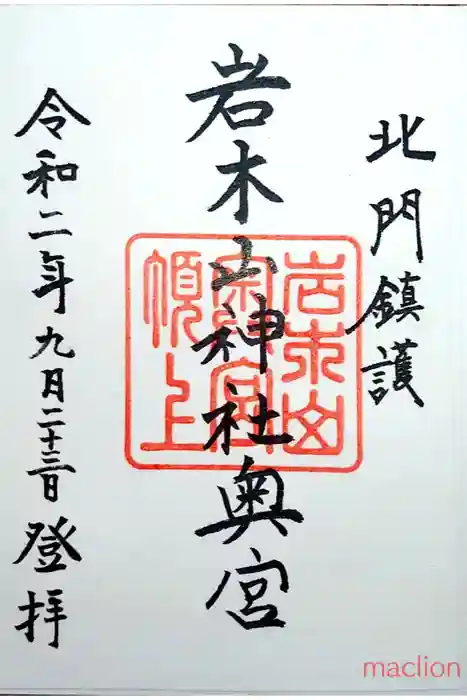 北門鎮護
岩木山神社奥宮
令和二年九月二十三日登拝
岩木山
頂上
maclion